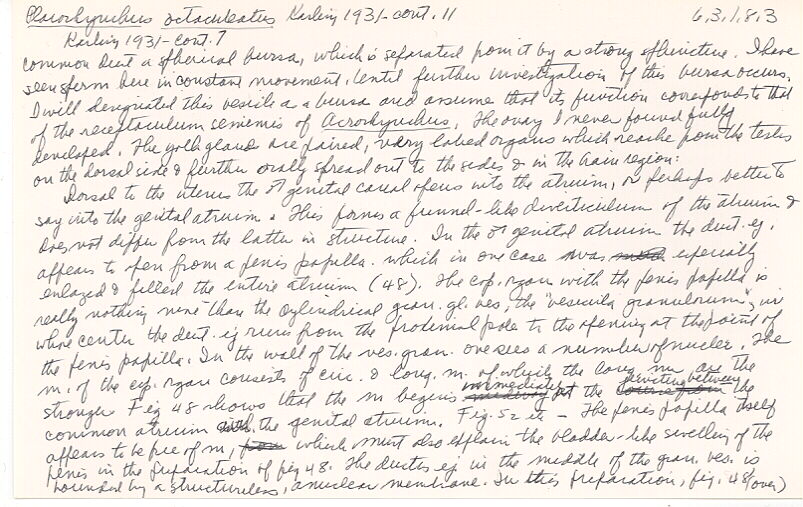 Acrorhynchus octaculeatus Karling 1931-cont. 11 6.3.1.8.3
Karling 1931-cont. 7
common duct a spherical bursa, which is separated from it by a strong sphincter. I have
seen sperm here in constant movement. Until further investigation of this bursa occurs,
I will designated this vesicle a a bursa and assume that its function corresponds to that
of the receptaculum seminis of Acrorhynchus. The ovary I never found fully
developed. The yolk glands are paired, wavy lobed organs which reache from the testes
on the dorsal side & further orally spread out to the sides & in the brain region:
Dorsal to the uterus the ♂ genital canal opens into the atrium, or perhaps better to
say into the genital atrium. This forms a funnel-like diverticulum of the atrium &
does not differ from the latter in structure. In the ♂ genital atrium the duct. ej.
appears to open from a penis papilla. which in one case was especially
enlarged & filled the entire atrium (48). The cop. organ with the penis papilla is
really nothing more than the cylindrical gran. gl. ves, the "vesicula granulorum", in
whose center the duct. ej runs from the proximal pole to the opening at the point of
the penis papilla. In the wall of the ves. gran. one sees a number of nuclei. The
m. of the cop. organ consists of circ. & long. m. of which the long. m. are the
stronger Fig 48 shows that the m begins immediately at the dividing between the
common atrium the genital atrium. Fig. 52 - The penis papilla itself
appears to be free of m, which must also explain the bladder-like swelling of the
penis in the preparation of fig 48. The ductus ej in the middle of the gran. ves. is
bounded by a structureless, anuclear membrane. In this preparation, fig. 48 (over)